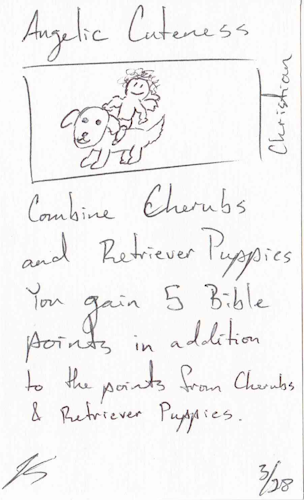 Angelic Cuteness
Christian
Combine Cherubs
and Retriever Puppies
You gain 5 Bible
points in addition
to the points from Cherubs
& Retriever Puppies.
3/28